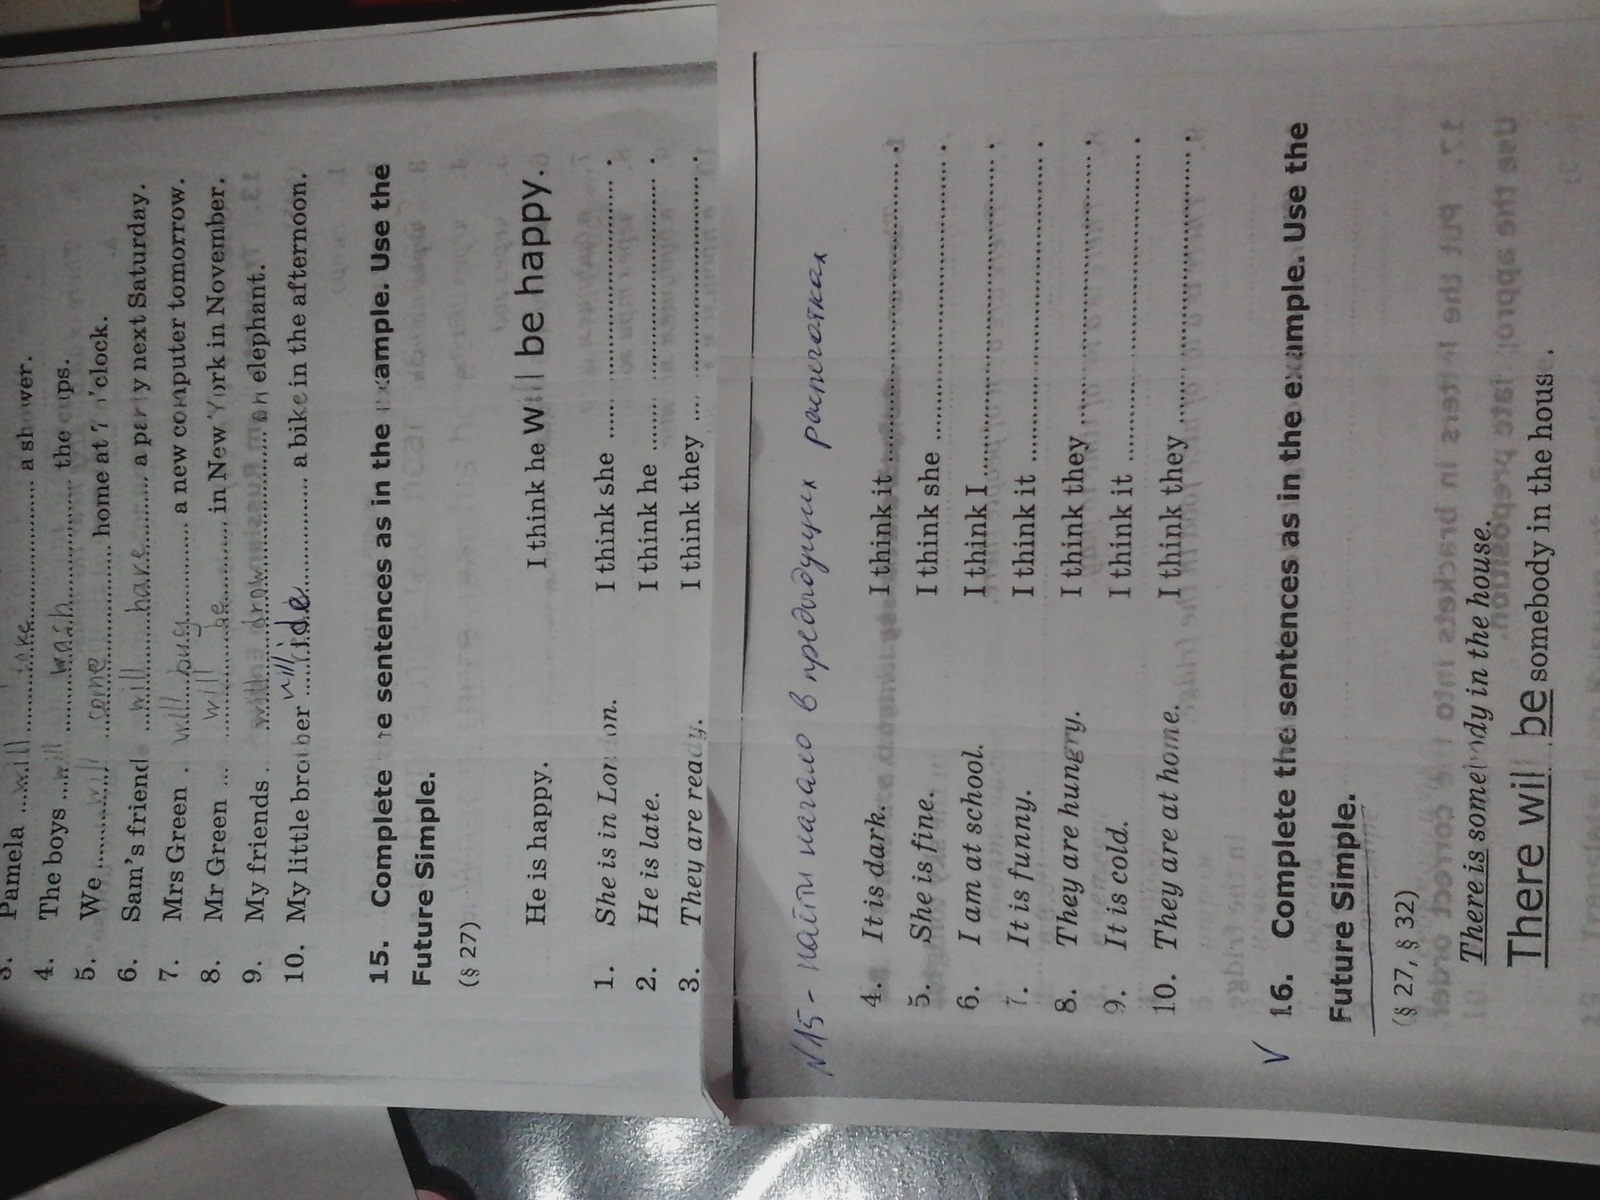 3. Pamela ...will take... a shower.
4. The boys ...will wash... the cups.
5. We ...will come... home at 7 o'clock.
6. Sam's friend ...will have... a party next Saturday.
7. Mrs Green ...will buy... a new computer tomorrow.
8. Mr Green ...will be... in New York in November.
9. My friends ... elephant.
10. My little brother ...will ride... a bike in the afternoon.
15. Complete the sentences as in the example. Use the
Future Simple.
(§ 27)
He is happy. I think he will be happy.
1. She is in London. I think she .......... .
2. He is late. I think he .......... .
3. They are ready. I think they .......... .
N15 - найти начало в предыдущих распечатках
4. It is dark. I think it .......... .
5. She is fine. I think she .......... .
6. I am at school. I think I .......... .
7. It is funny. I think it .......... .
8. They are hungry. I think they .......... .
9. It is cold. I think it .......... .
10. They are at home. I think they .......... .
V 16. Complete the sentences as in the example. Use the
Future Simple.
(§ 27, § 32)
There is somebody in the house.
There will be somebody in the house.